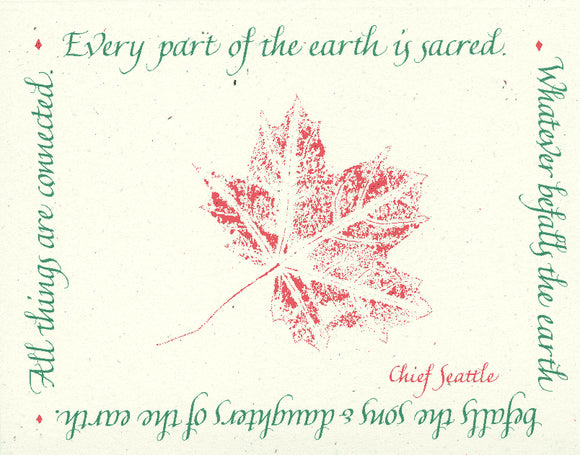 Every part of the earth is sacred.
Whatever befalls the earth
befalls the sons & daughters of the earth.
All things are connected.
Chief Seattle